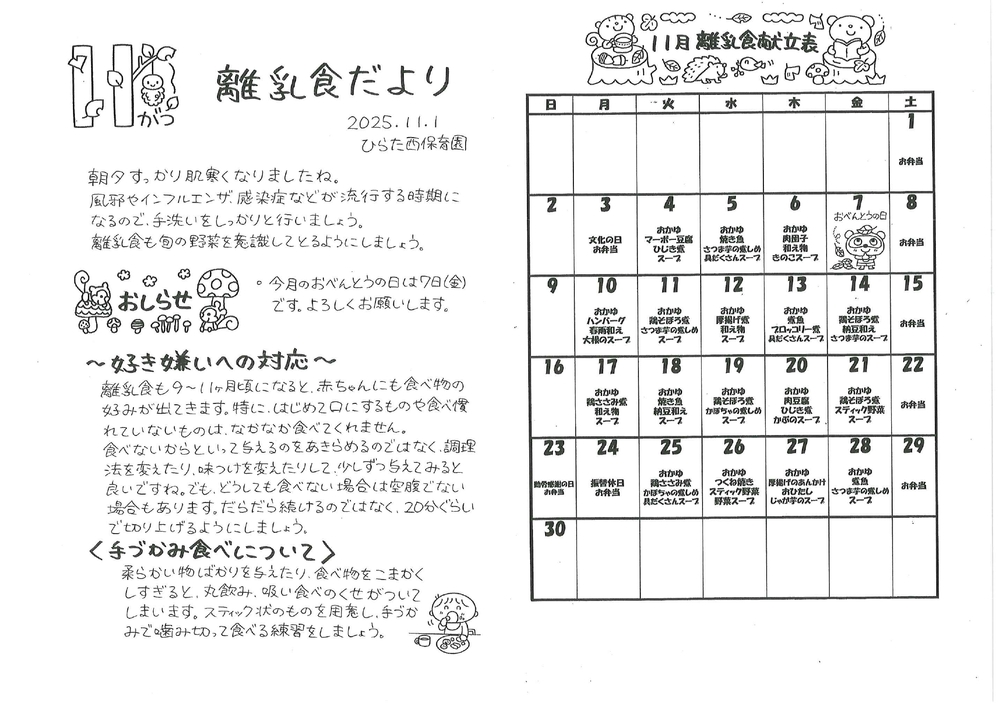 11がつ
離乳食だより
2025.11.1
ひらた西保育園
朝夕すっかり肌寒くなりましたね。
風邪やインフルエンザ、感染症などが流行する時期に
なるので、手洗いをしっかりと行いましょう。
離乳食も旬の野菜を意識してとるようにしましょう。
おしらせ
。今月のおべんとうの日は7日(金)
です。よろしくお願いします。
～好き嫌いへの対応～
離乳食も9～11ヶ月頃になると、赤ちゃんにも食べ物の
好みが出てきます。特に、はじめて口にするものや食べ慣
れていないものは、なかなか食べてくれません。
食べないからといって与えるのをあきらめるのではなく、調理
法を変えたり、味つけを変えたりして、少しずつ与えてみると
良いですね。でも、どうしても食べない場合は空腹でない
場合もあります。だらだら続けるのではなく、20分ぐらい
で切り上げるようにしましょう。
〈手づかみ食べについて〉
柔らかい物ばかりを与えたり、食べ物をこまかく
しすぎると、丸飲み、吸い食べのくせがついて
しまいます。スティック状のものを用意し、手づか
みで噛み切って食べる練習をしましょう。
11月離乳食献立表
日 月 火 水 木 金 土
1
お弁当
2 3 4 5 6 7 8
文化の日
お弁当
おかゆ
マーボー豆腐
ひじき煮
スープ
おかゆ
焼き魚
さつま芋の煮しめ
具だくさんスープ
おかゆ
肉団子
和え物
きのこスープ
おべんとうの日
お弁当
9 10 11 12 13 14 15
おかゆ
ハンバーグ
春雨和え
大根のスープ
おかゆ
鶏そぼろ煮
さつま芋の煮しめ
スープ
おかゆ
厚揚げ煮
和え物
スープ
おかゆ
煮魚
ブロッコリー煮
具だくさんスープ
おかゆ
鶏そぼろ煮
納豆和え
さつま芋のスープ
お弁当
16 17 18 19 20 21 22
おかゆ
鶏ささみ煮
和え物
スープ
おかゆ
焼き魚
納豆和え
スープ
おかゆ
鶏そぼろ煮
かぼちゃの煮しめ
スープ
おかゆ
肉豆腐
ひじき煮
かぶのスープ
おかゆ
鶏そぼろ煮
スティック野菜
スープ
お弁当
23 24 25 26 27 28 29
勤労感謝の日
お弁当
振替休日
お弁当
おかゆ
鶏ささみ煮
かぼちゃの煮しめ
具だくさんスープ
おかゆ
つくね焼き
スティック野菜
野菜スープ
おかゆ
厚揚げのあんかけ
おひたし
じゃが芋のスープ
おかゆ
煮魚
さつま芋の煮しめ
スープ
お弁当
30